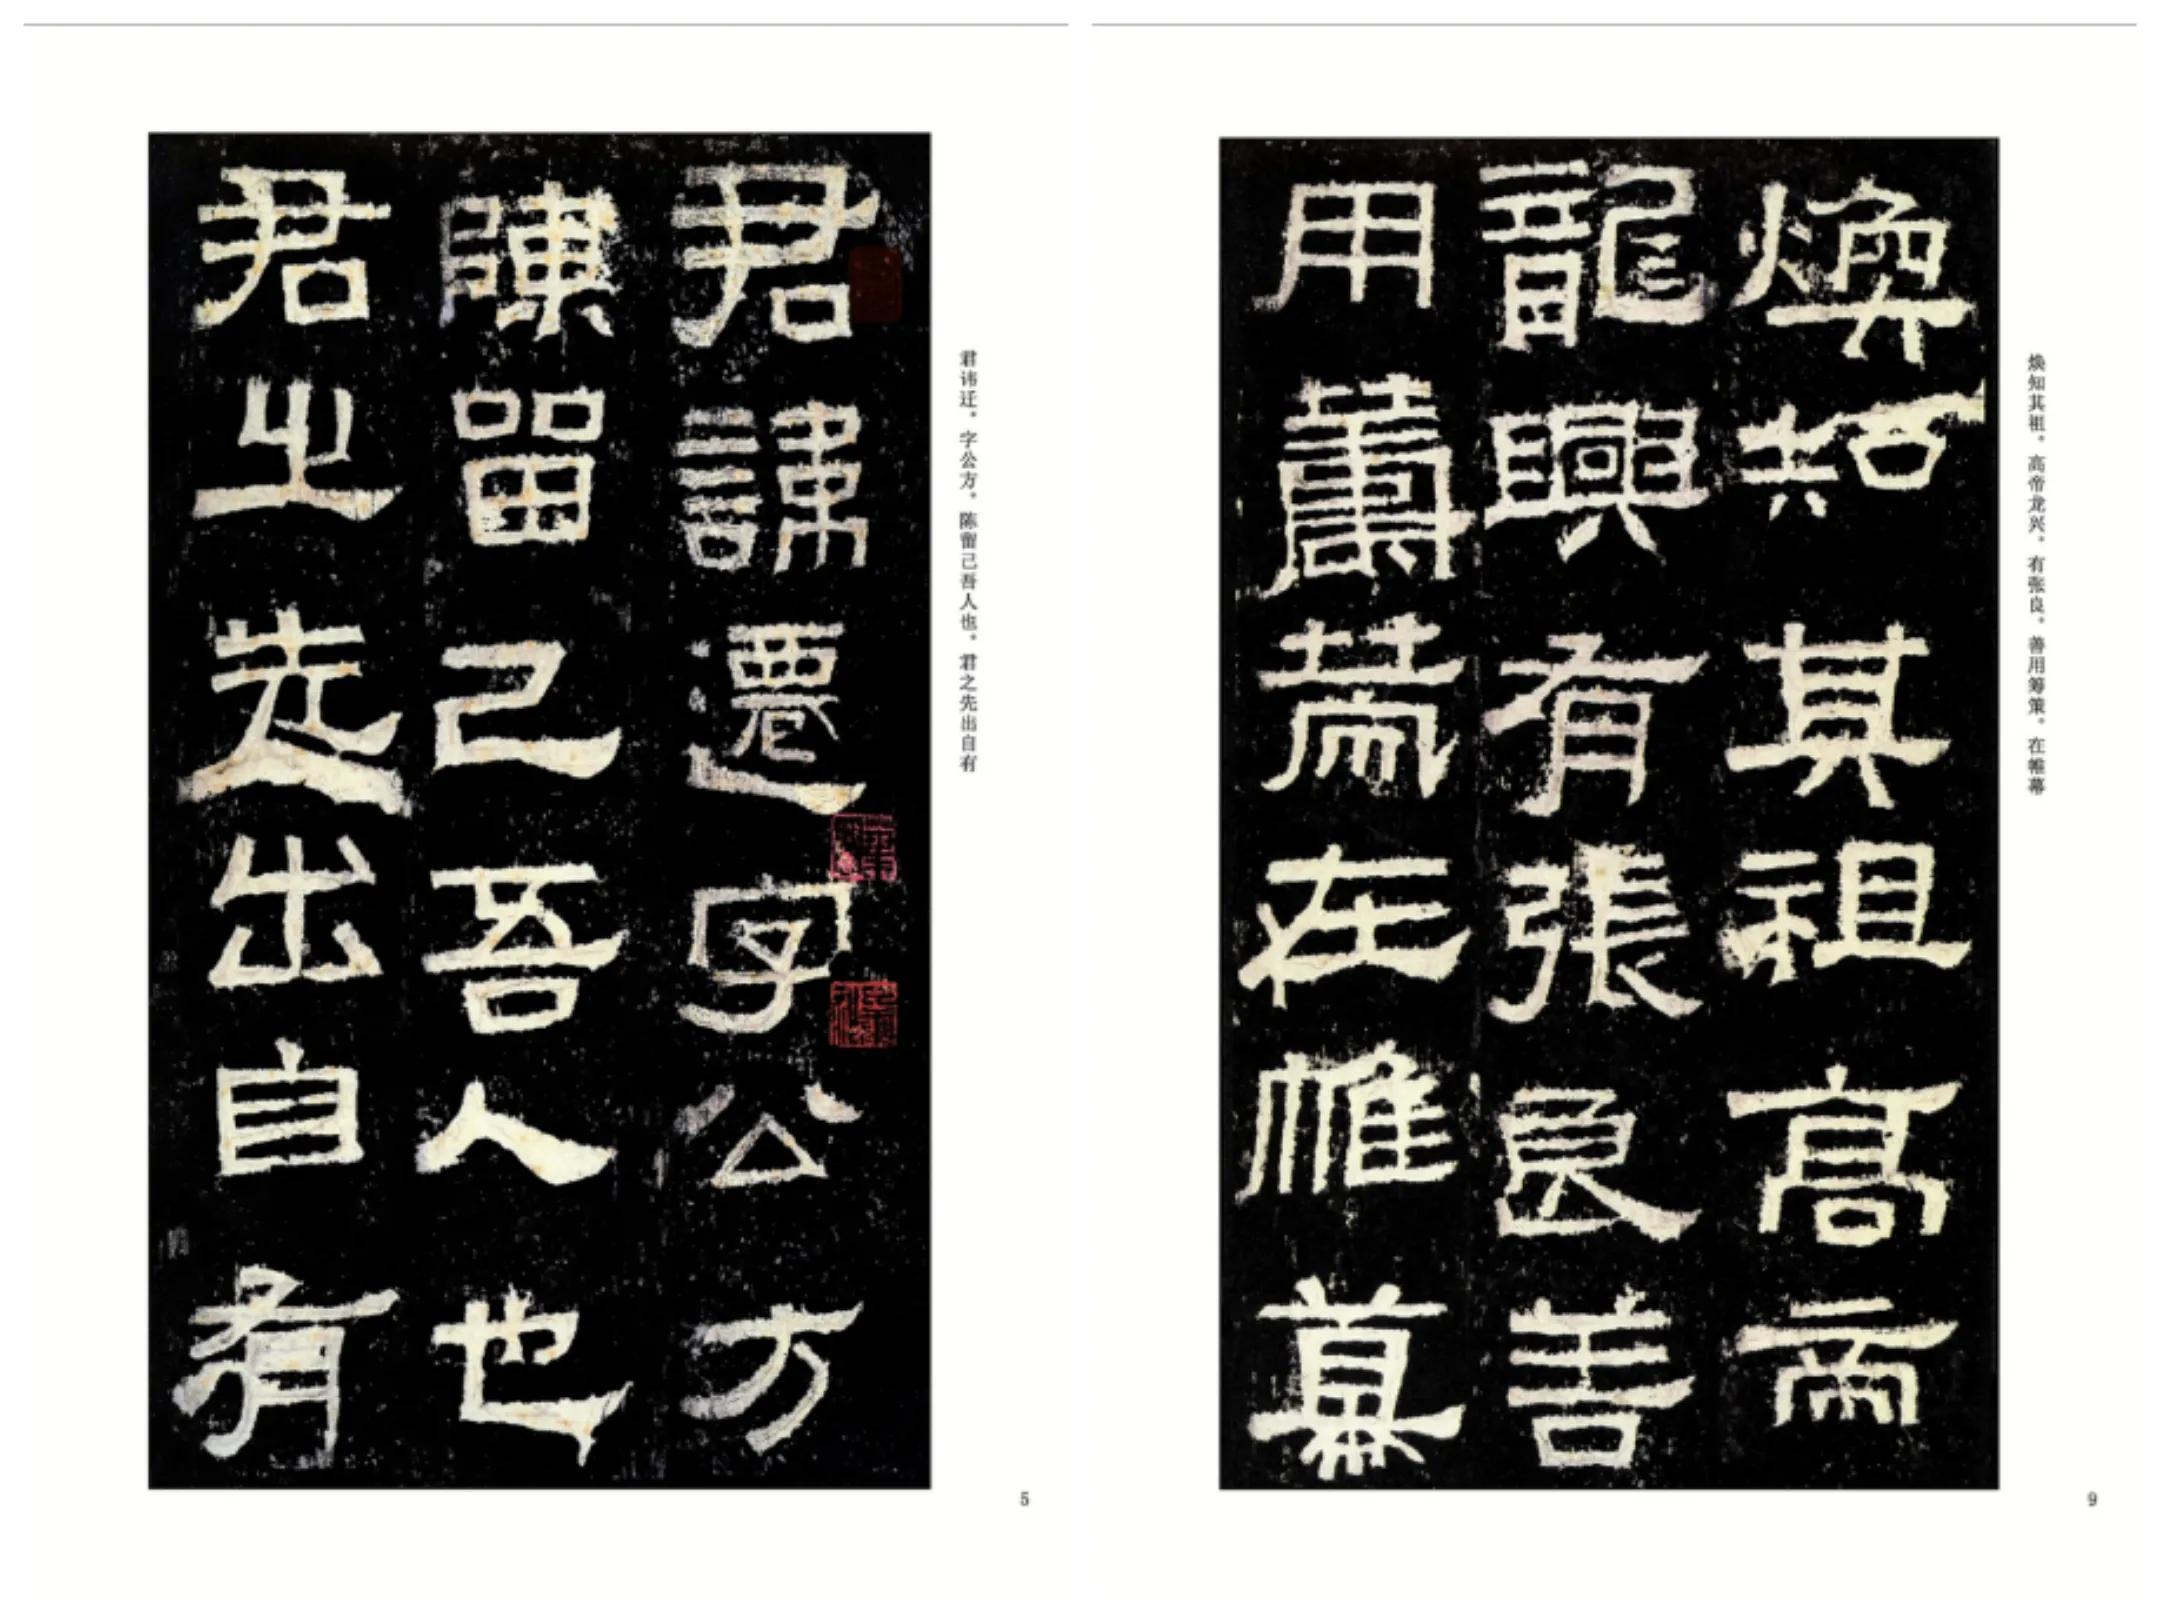 君讳迁。字公方。陈留己吾人也。君之先出自有
君諱遷字公方
陳留己吾人也
君之先出自有
5
焕知其祖。高帝龙兴。有张良。善用筹策。在帷幕
煥知其祖高帝
龍興有張良善
用籌策在帷幕
9